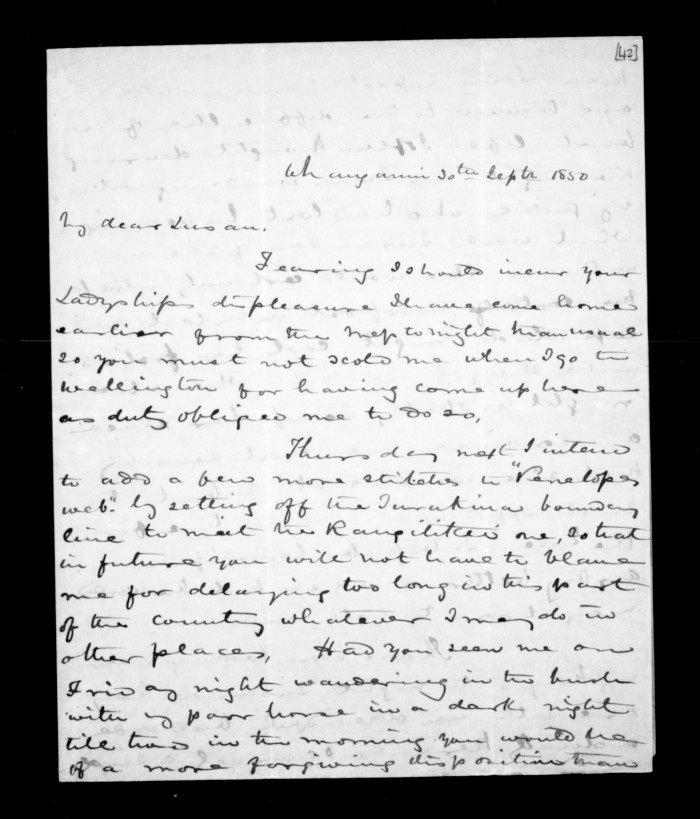 [42]
Whanganui 30th Septr 1850
My dear Susan.
Fearing I should incur your
Ladyships displeasure I have come home
earlier from the Mess tonight than usual
so you must not scold me when I go to
Wellington for having come up here
as duty obliged me to do so,
Thursday next I intend
to add a few more stitches to "Penelopes
web" by setting off the Turakina boundary
line to meet the Rangitikei one, so that
in future you will not have to blame
me for delaying too long in this part
of the country whatever I may do in
other places, Had you seen me on
Friday night wandering in the bush
with my poor horse in a dark night
till two in the morning you would be
of a more forgiving disposition than